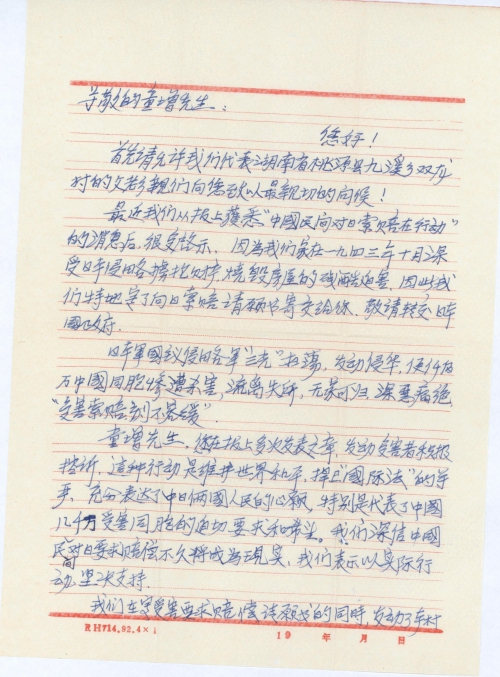 尊敬的童增先生：
您好！
首先请允许我们代表湖南省桃源县九溪乡双龙
村的父老乡亲们向您致以最亲切的问候！
最近我们从报上获悉“中國民间对日索赔在行动”
的消息后，很多启示，因为我们家在一九四三年十月深
受日军侵略掳抢，烧毁房屋的残酷迫害，因此我
们特地写了向日索赔请愿书寄交给你，敬请转交日本
國政府.
日本軍國主义侵略军“三光”扫荡，发动侵华，使千百
万中國同胞惨遭杀害，流离失所，无家可归，深恶痛绝，
“受害索赔刻不容缓”.
童增先生，您在报上多次发表文章，发动受害者积极
控诉，这种行动是维护世界和平，捍卫“國际法”的尊
严，充分表达了中日俩國人民的心愿，特别是代表了中國
几千万受害同胞的迫切要求和希望。我们深信中國
民间对日要求赔偿不久将成为現实，我们表示以实际行
动坚决支持.
我们在写受害要求赔偿请愿书的同时，发动了本村
RH714.92.4×1
19 年 月 日